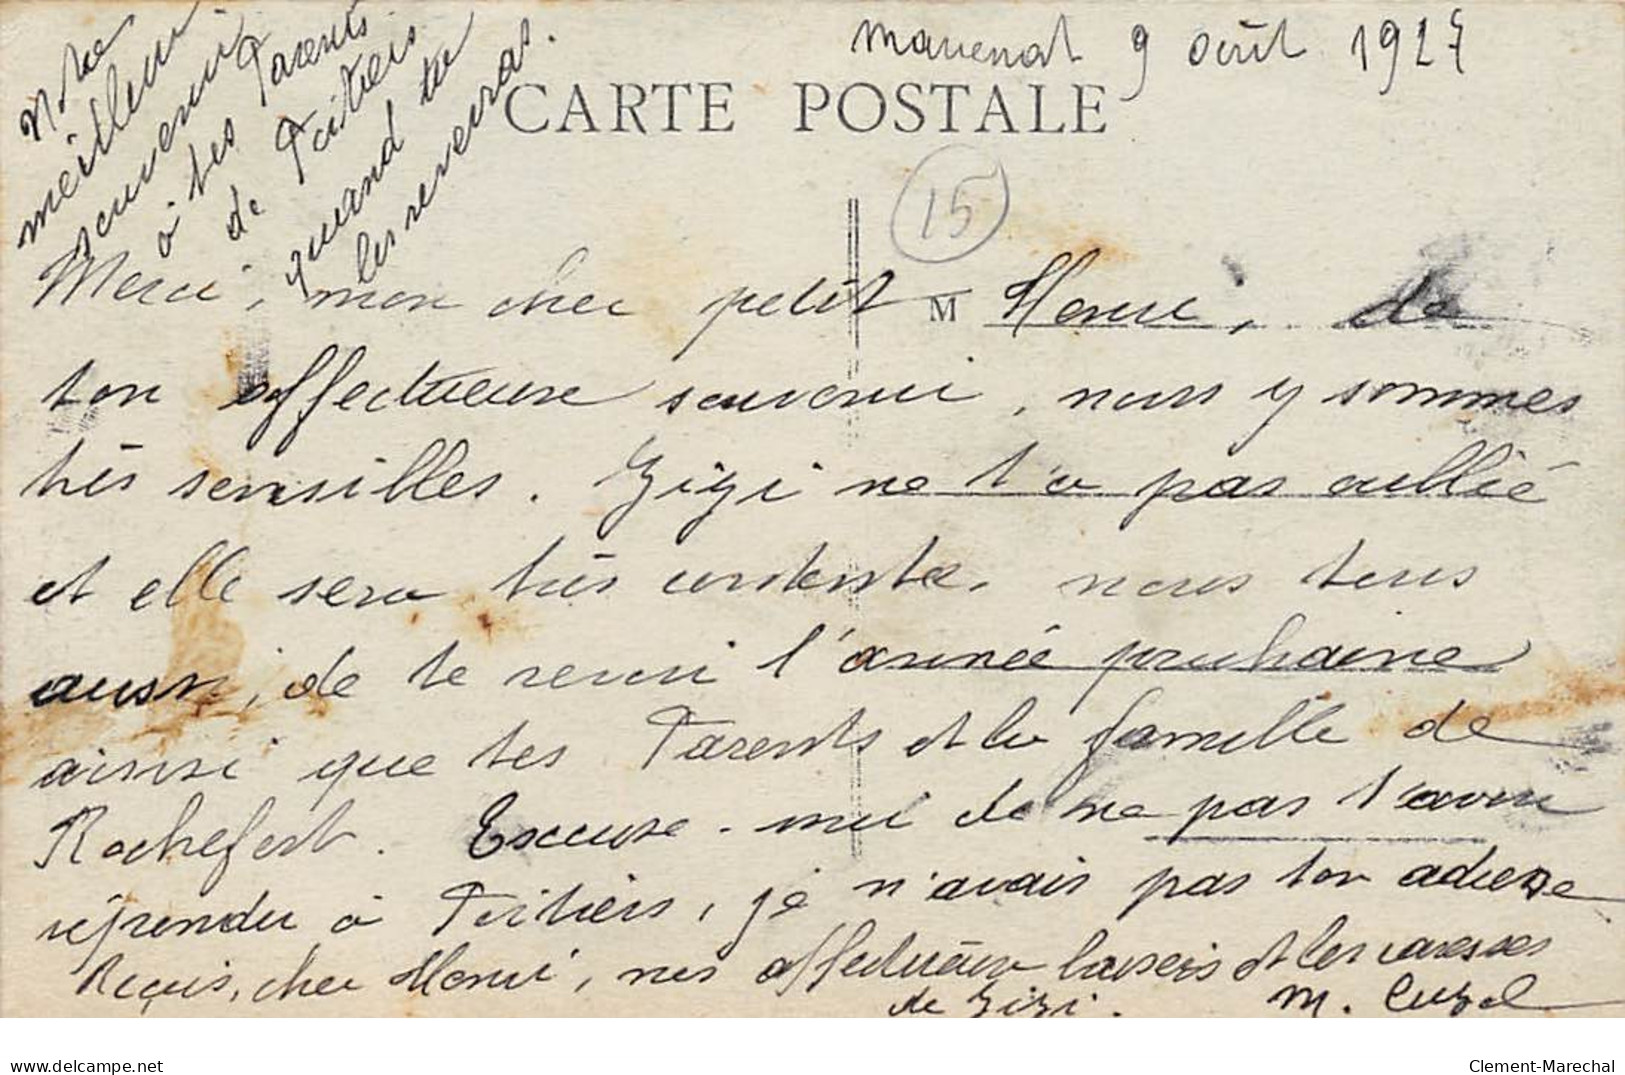 9 août 1927
CARTE POSTALE
15
Notre
meilleur
souvenir
à tes Parents
de Poitiers
quand tu
les reverras.
Merci, mon cher petit Henri, de
M
ton affectueux souvenir, nous y sommes
très sensibles. Zizi ne t'a pas oublié
et elle sera très contente, nous tous
aussi, de te revoir l'année prochaine
ainsi que tes Parents et la famille de
Rochefort. Excuse-moi de ne pas t'avoir
répondu à Poitiers, je n'avais pas ton adresse
Reçois, cher Henri, nos affectueux baisers et les caresses
de Zizi. M.
delcampe.net
Clement-Marechal